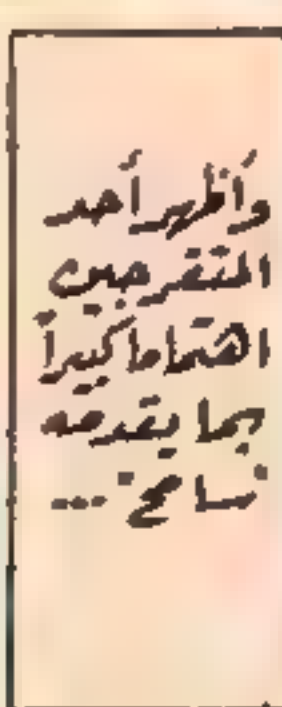 وأظهر أحد
المتفرجين
اهتماما كبيراً
بما يقدمه
سامح ...